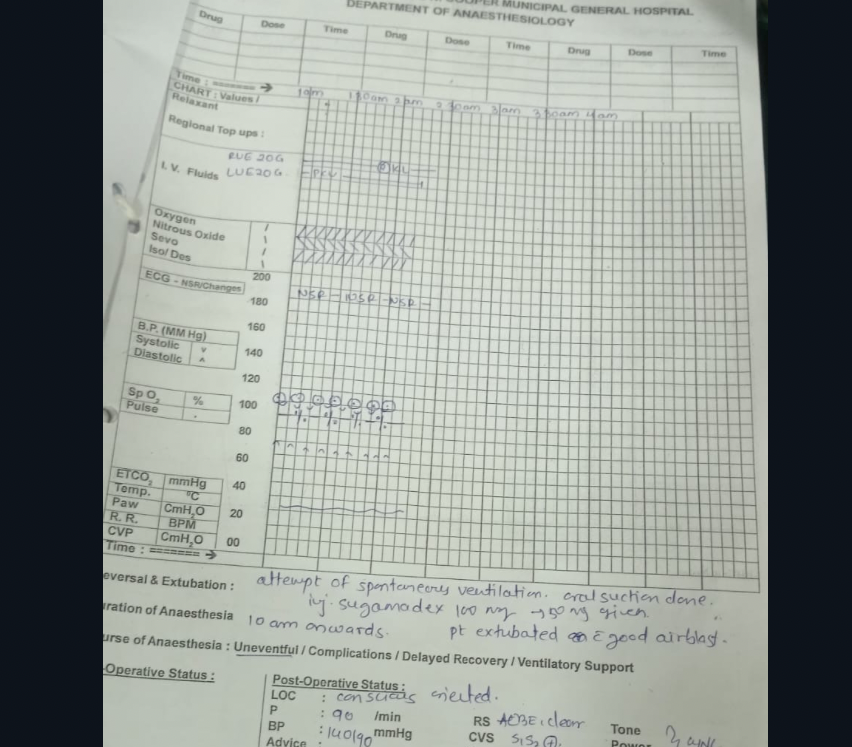 COOPER MUNICIPAL GENERAL HOSPITAL
DEPARTMENT OF ANAESTHESIOLOGY
Drug Dose Time Drug Dose Time Drug Dose Time
Time : ======= →
CHART : Values /
Relaxant
Regional Top ups :
RUE 20G
I. V. Fluids LUE 20G
Oxygen /
Nitrous Oxide \
Sevo /
Iso/ Des \
200
ECG - NSR/Changes
180
NSR - NSR - NSR -
160
B.P. (MM Hg)
Systolic v
Diastolic ʌ
140
120
Sp O₂ %
Pulse .
100
80
60
ETCO₂ mmHg
40
Temp. °C
Paw CmH₂O
20
R. R. BPM
CVP CmH₂O
00
Time : ======= →
eversal & Extubation : attempt of spontaneous ventilation. oral suction done.
inj. sugamadex 100 mg → 50 mg given
uration of Anaesthesia 10 am onwards. pt extubated c̄ good airblast.
urse of Anaesthesia : Uneventful / Complications / Delayed Recovery / Ventilatory Support
-Operative Status :
Post-Operative Status :
LOC : conscious oriented.
P : 90 /min
RS AEBE, clear
Tone
BP : 140/90 mmHg
CVS S₁S₂ ⊕.
Power
Advice :